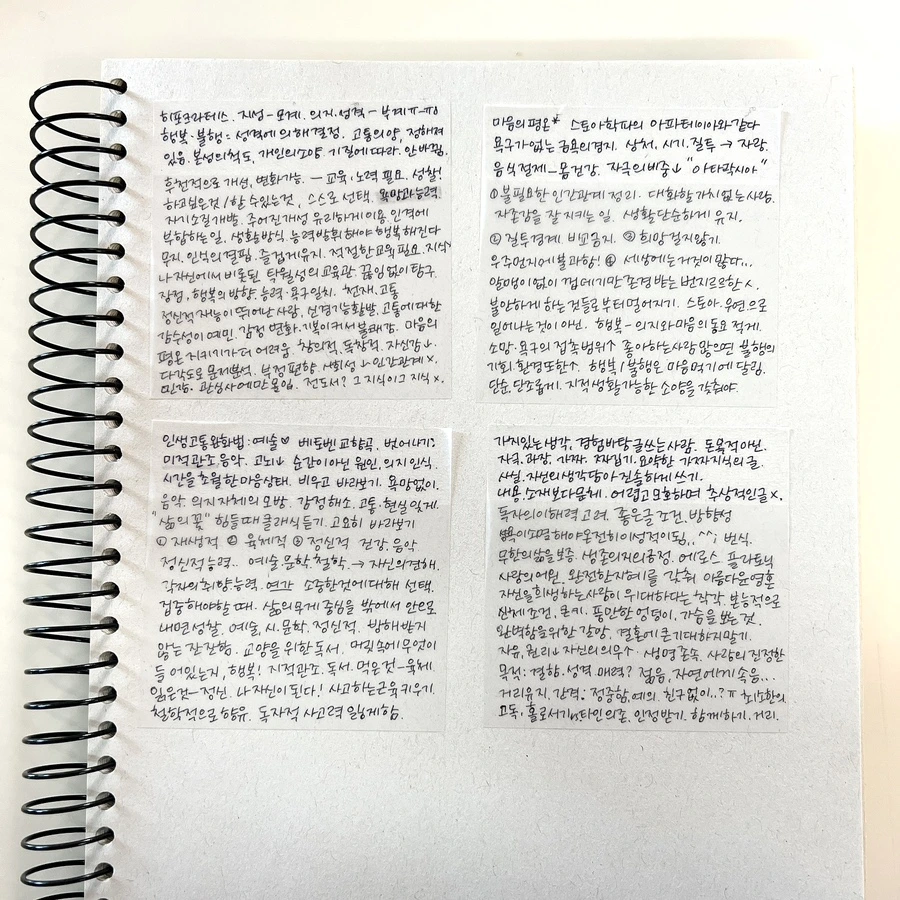 히포크라테스. 지성-모계. 의지.성격-부계ㅠ-ㅠ
행복·불행 = 성격에의해결정. 고통의양, 정해져
있음. 본성의척도, 개인의소양. 기질에따라. 안바뀜.
후천적으로 개선, 변화가능. — 교육, 노력 필요. 성찰!
하고싶은것/할수있는것, 스스로 선택. 욕망과능력.
자기소질개발. 주어진개성 유리하게이용. 인격에
부합하는일. 생활방식. 능력발휘해야 행복해진다
무지. 인식의결핍. 즐겁게유지. 적절한교육필요. 지식
나자신에서 비롯된 탁월성의교육관. 끊임없이탐구.
장점, 행복의방향. 능력·욕구일치. 천재, 고통
정신적재능이 뛰어난사람, 신경기능활발. 고통에대한
감수성이예민. 감정 변화. 기복이커서불쾌감. 마음의
평온 지키기가더어려움. 창의적. 독창적. 자신감↓.
다각도로 문제분석. 부정편향. 사회성↓ 인간관계 x.
민감. 관심사에만몰입. 전도서? 그지식이그지식 x.
마음의평온* 스토아학파의 아파테이아와같다
욕구가없는 경지. 상처, 시기. 질투 → 자랑.
음식절제-몸건강. 자극의비중↓ "아타락시아"
①불필요한인간관계정리. 대화할가치없는사람.
자존감을 잘지키는일. 생활단순하게 유지.
② 질투경계. 비교금지. ③ 희망걸지않기.
우주먼지에불과함! ④ 세상에는거짓이많다..
알맹이없이 껍데기만존경받는번지르르한 x.
불안하게하는것들로부터멀어지기. 스토아. 우연으로
일어나는것이 아닌. 행복-의지와마음의동요 적게.
소망·욕구의접촉범위↑ 좋아하는사람많으면 불행의
기회.환경또한↑. 행복/불행은 마음먹기에달림.
단순.단조롭게. 지적생활가능한 소양을갖춰야.
인생고통완화법: 예술♡ 베토벤교향곡. 벗어나기:
미적관조.음악. 고뇌↓ 순간이아닌 원인, 의지인식.
시간을초월한마음상태. 비우고 바라보기. 욕망없이.
음악. 의지자체의모방. 감정해소. 고통·현실잊게.
"삶의꽃" 힘들때클래식듣기. 고요히 바라보기
① 재생적 ② 육체적 ③ 정신적 건강.음악
정신적능력.. 예술,문학,철학. → 자신의견해.
각자의취향.능력. 여가 소중한것에대해 선택.
집중해야할 때. 삶의무게중심을 밖에서 안으로
내면성찰. 예술, 시.문학. 정신적. 방해받지
않는 잔잔함. 교양을위한독서. 머릿속에무엇이
들어있는지, 행복! 지적관조.독서. 먹은것-육체
읽은것-정신. 나자신이된다! 사고하는근육키우기.
철학적으로 향유. 독자적 사고력 잃게함.
가치있는생각, 경험바탕글쓰는사람. 돈목적아닌.
자극. 과장. 가짜. 짜집기. 요약한 가짜지식의글.
사실. 자신의생각담아진솔하게쓰기.
내용.소재보다문체. 어렵고모호하며 추상적인글 x.
독자의이해력고려. 좋은글조건. 방향성
해야온전히이성적이됨.. ^^; 번식.
무한의삶을보증. 생존의지의긍정. 에로스 플라토닉
사랑의어원. 완전한지혜를 갖춰 아름다운영혼
자신을희생하는사람이 위대하다는 착각. 본능적으로
신체조건. 큰키. 풍만한엉덩이, 가슴을보는것.
완벽함을위한갈망. 결혼에큰기대하지말기.
자유, 권리↓자신의의무↑. 생명존속. 사랑의진정한
목적: 결합.성격 매력? 젊음, 자연에게속음...
거리유지, 간격: 정중함,예의. 친구없이..?ㅠ 최소한의
고독, 홀로서기타인의존. 인정받기. 함께하기.거리.